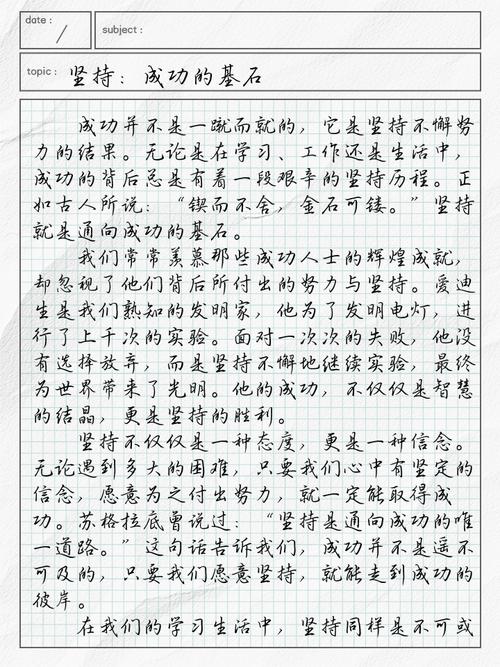 date :
subject :
topic : 坚持：成功的基石
成功并不是一蹴而就的，它是坚持不懈努
力的结果。无论是在学习、工作还是生活中，
成功的背后总是有着一段艰辛的坚持历程。正
如古人所说：“锲而不舍，金石可镂。”坚持
就是通向成功的基石。
我们常常羡慕那些成功人士的辉煌成就，
却忽视了他们背后所付出的努力与坚持。爱迪
生是我们熟知的发明家，他为了发明电灯，进
行了上千次的实验。面对一次次的失败，他没
有选择放弃，而是坚持不懈地继续实验，最终
为世界带来了光明。他的成功，不仅仅是智慧
的结晶，更是坚持的胜利。
坚持不仅仅是一种态度，更是一种信念。
无论遇到多大的困难，只要我们心中有坚定的
信念，愿意为之付出努力，就一定能取得成
功。苏格拉底曾说过：“坚持是通向成功的唯
一道路。”这句话告诉我们，成功并不是遥不
可及的，只要我们愿意坚持，就能走到成功的
彼岸。
在我们的学习生活中，坚持同样是不可或